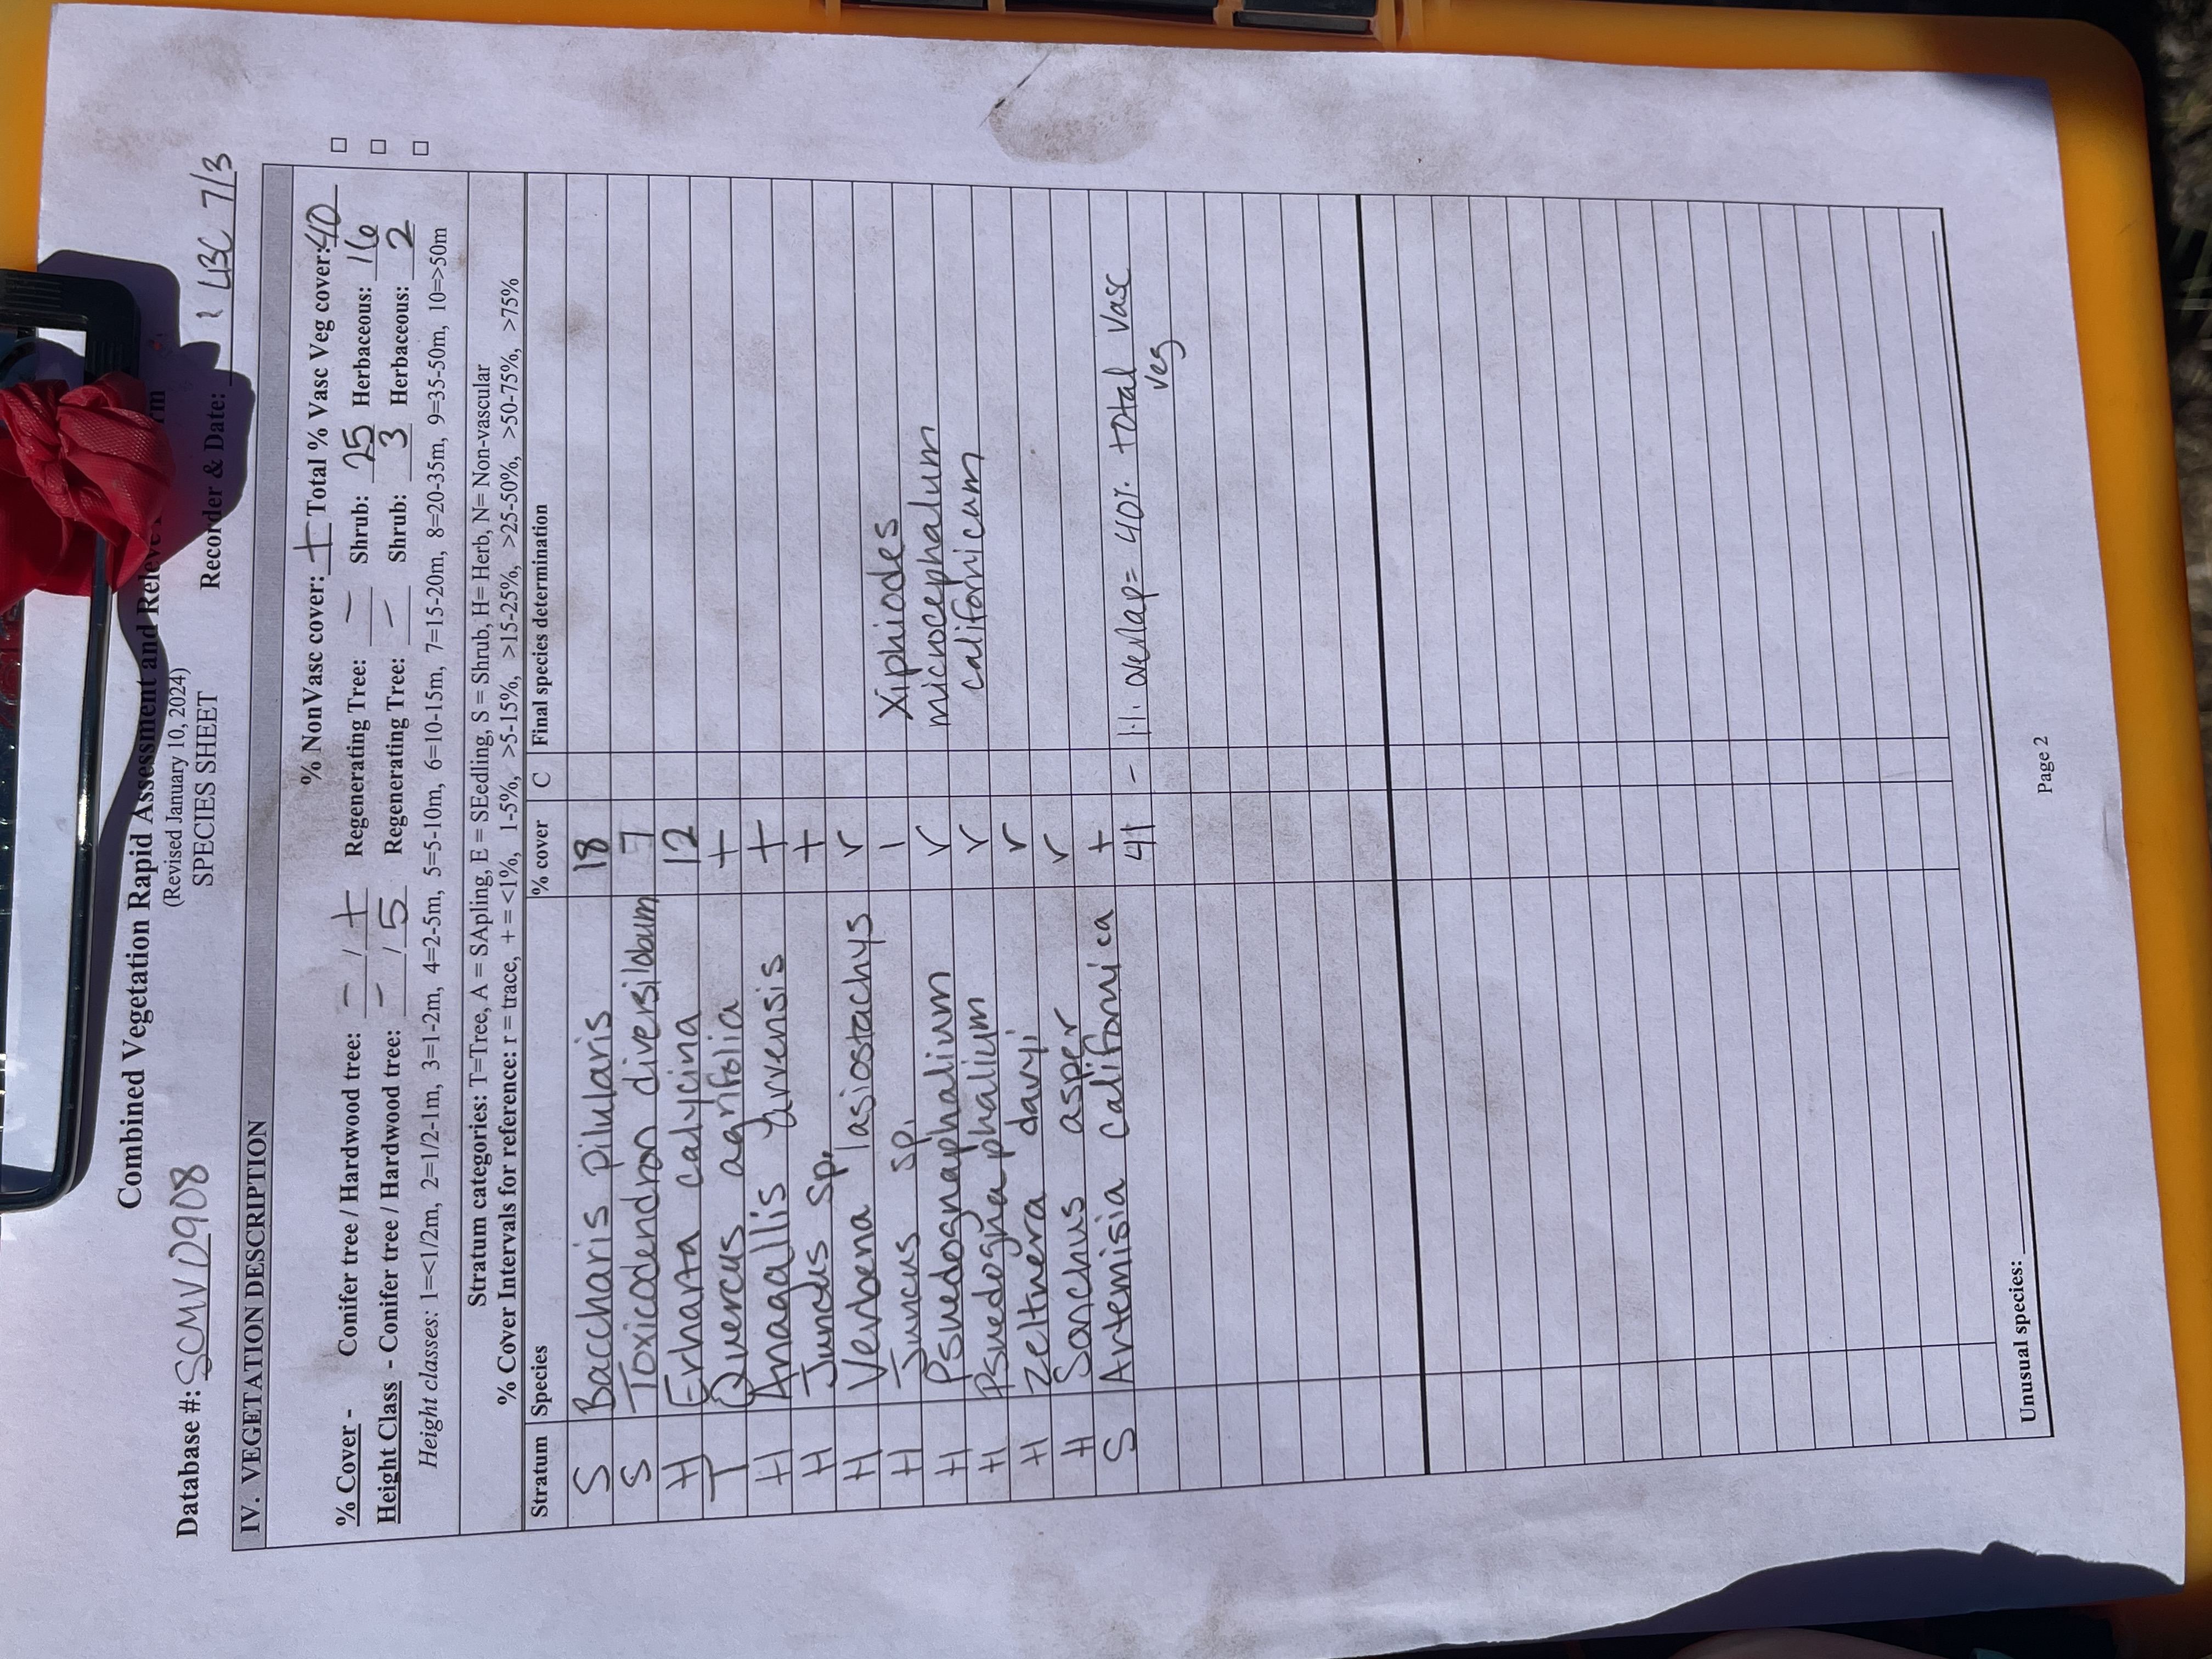 Combined Vegetation Rapid Assessment and Relevé
(Revised January 10, 2024)
SPECIES SHEET
Database #: SCMVD908
Recorder & Date: LBC 7/3
IV. VEGETATION DESCRIPTION
% NonVasc cover: + Total % Vasc Veg cover: 40 □
% Cover - Conifer tree / Hardwood tree: - / + Regenerating Tree: - Shrub: 25 Herbaceous: 16 □
Height Class - Conifer tree / Hardwood tree: - / 5 Regenerating Tree: - Shrub: 3 Herbaceous: 2 □
Height classes: 1=<1/2m, 2=1/2-1m, 3=1-2m, 4=2-5m, 5=5-10m, 6=10-15m, 7=15-20m, 8=20-35m, 9=35-50m, 10=>50m
Stratum categories: T=Tree, A = SApling, E = SEedling, S = Shrub, H= Herb, N= Non-vascular
% Cover Intervals for reference: r = trace, + = <1%, 1-5%, >5-15%, >15-25%, >25-50%, >50-75%, >75%
Stratum Species % cover C Final species determination
S Baccharis pilularis 18
S Toxicodendron diversilobum 7
H Erharta calycina 12
T Quercus agrifolia +
H Anagallis arvensis +
H Juncus sp. +
H Verbena lasiostachys r
H Juncus sp. 1 Xiphiodes
H Psuedognaphalium r microcephalum
H Psuedognaphalium r californicum
H Zeltnera davyi r
H Sonchus asper r
S Artemisia californica +
41 - 1% overlap = 40% total vasc
veg
Unusual species:
Page 2